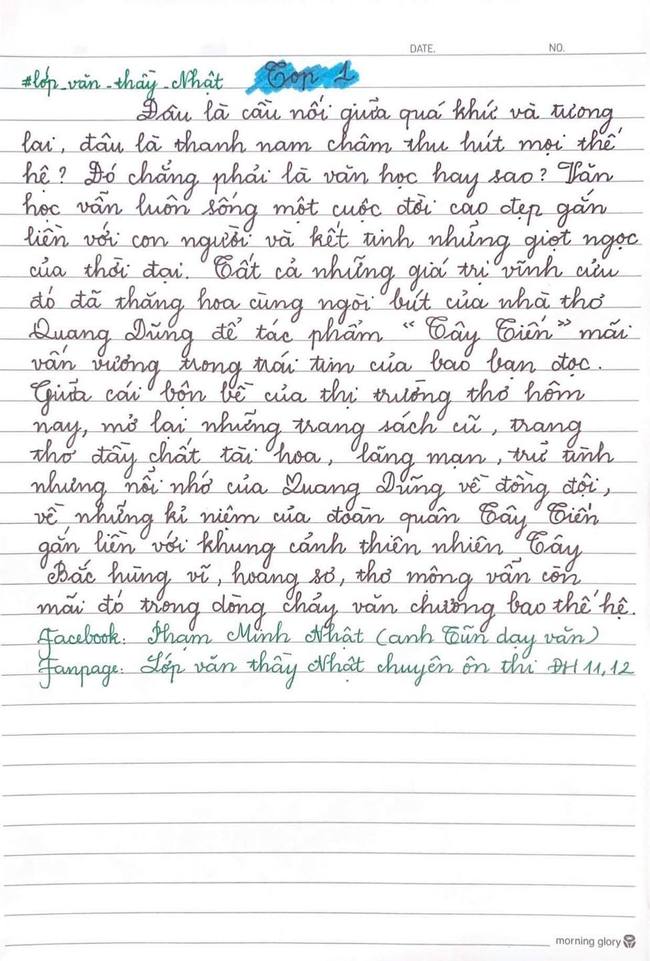 DATE. NO.
#lớp_văn_thầy_Nhật Top 1
Đâu là cầu nối giữa quá khứ và tương
lai, đâu là thanh nam châm thu hút mọi thế
hệ? Đó chẳng phải là văn học hay sao? Văn
học vẫn luôn sống một cuộc đời cao đẹp gắn
liền với con người và kết tinh những giọt ngọc
của thời đại. Tất cả những giá trị vĩnh cửu
đó đã thăng hoa cùng ngòi bút của nhà thơ
Quang Dũng để tác phẩm "Tây Tiến" mãi
vấn vương trong trái tim của bao bạn đọc.
Giữa cái bộn bề của thị trường thơ hôm
nay, mở lại những trang sách cũ, trang
thơ đầy chất tài hoa, lãng mạn, trữ tình
nhưng nỗi nhớ của Quang Dũng về đồng đội,
về những kỉ niệm của đoàn quân Tây Tiến
gắn liền với khung cảnh thiên nhiên Tây
Bắc hùng vĩ, hoang sơ, thơ mộng vẫn còn
mãi đó trong dòng chảy văn chương bao thế hệ.
Facebook: Phạm Minh Nhật (anh Tũn dạy văn)
Fanpage: Lớp văn thầy Nhật chuyên ôn thi ĐH 11, 12
morning glory